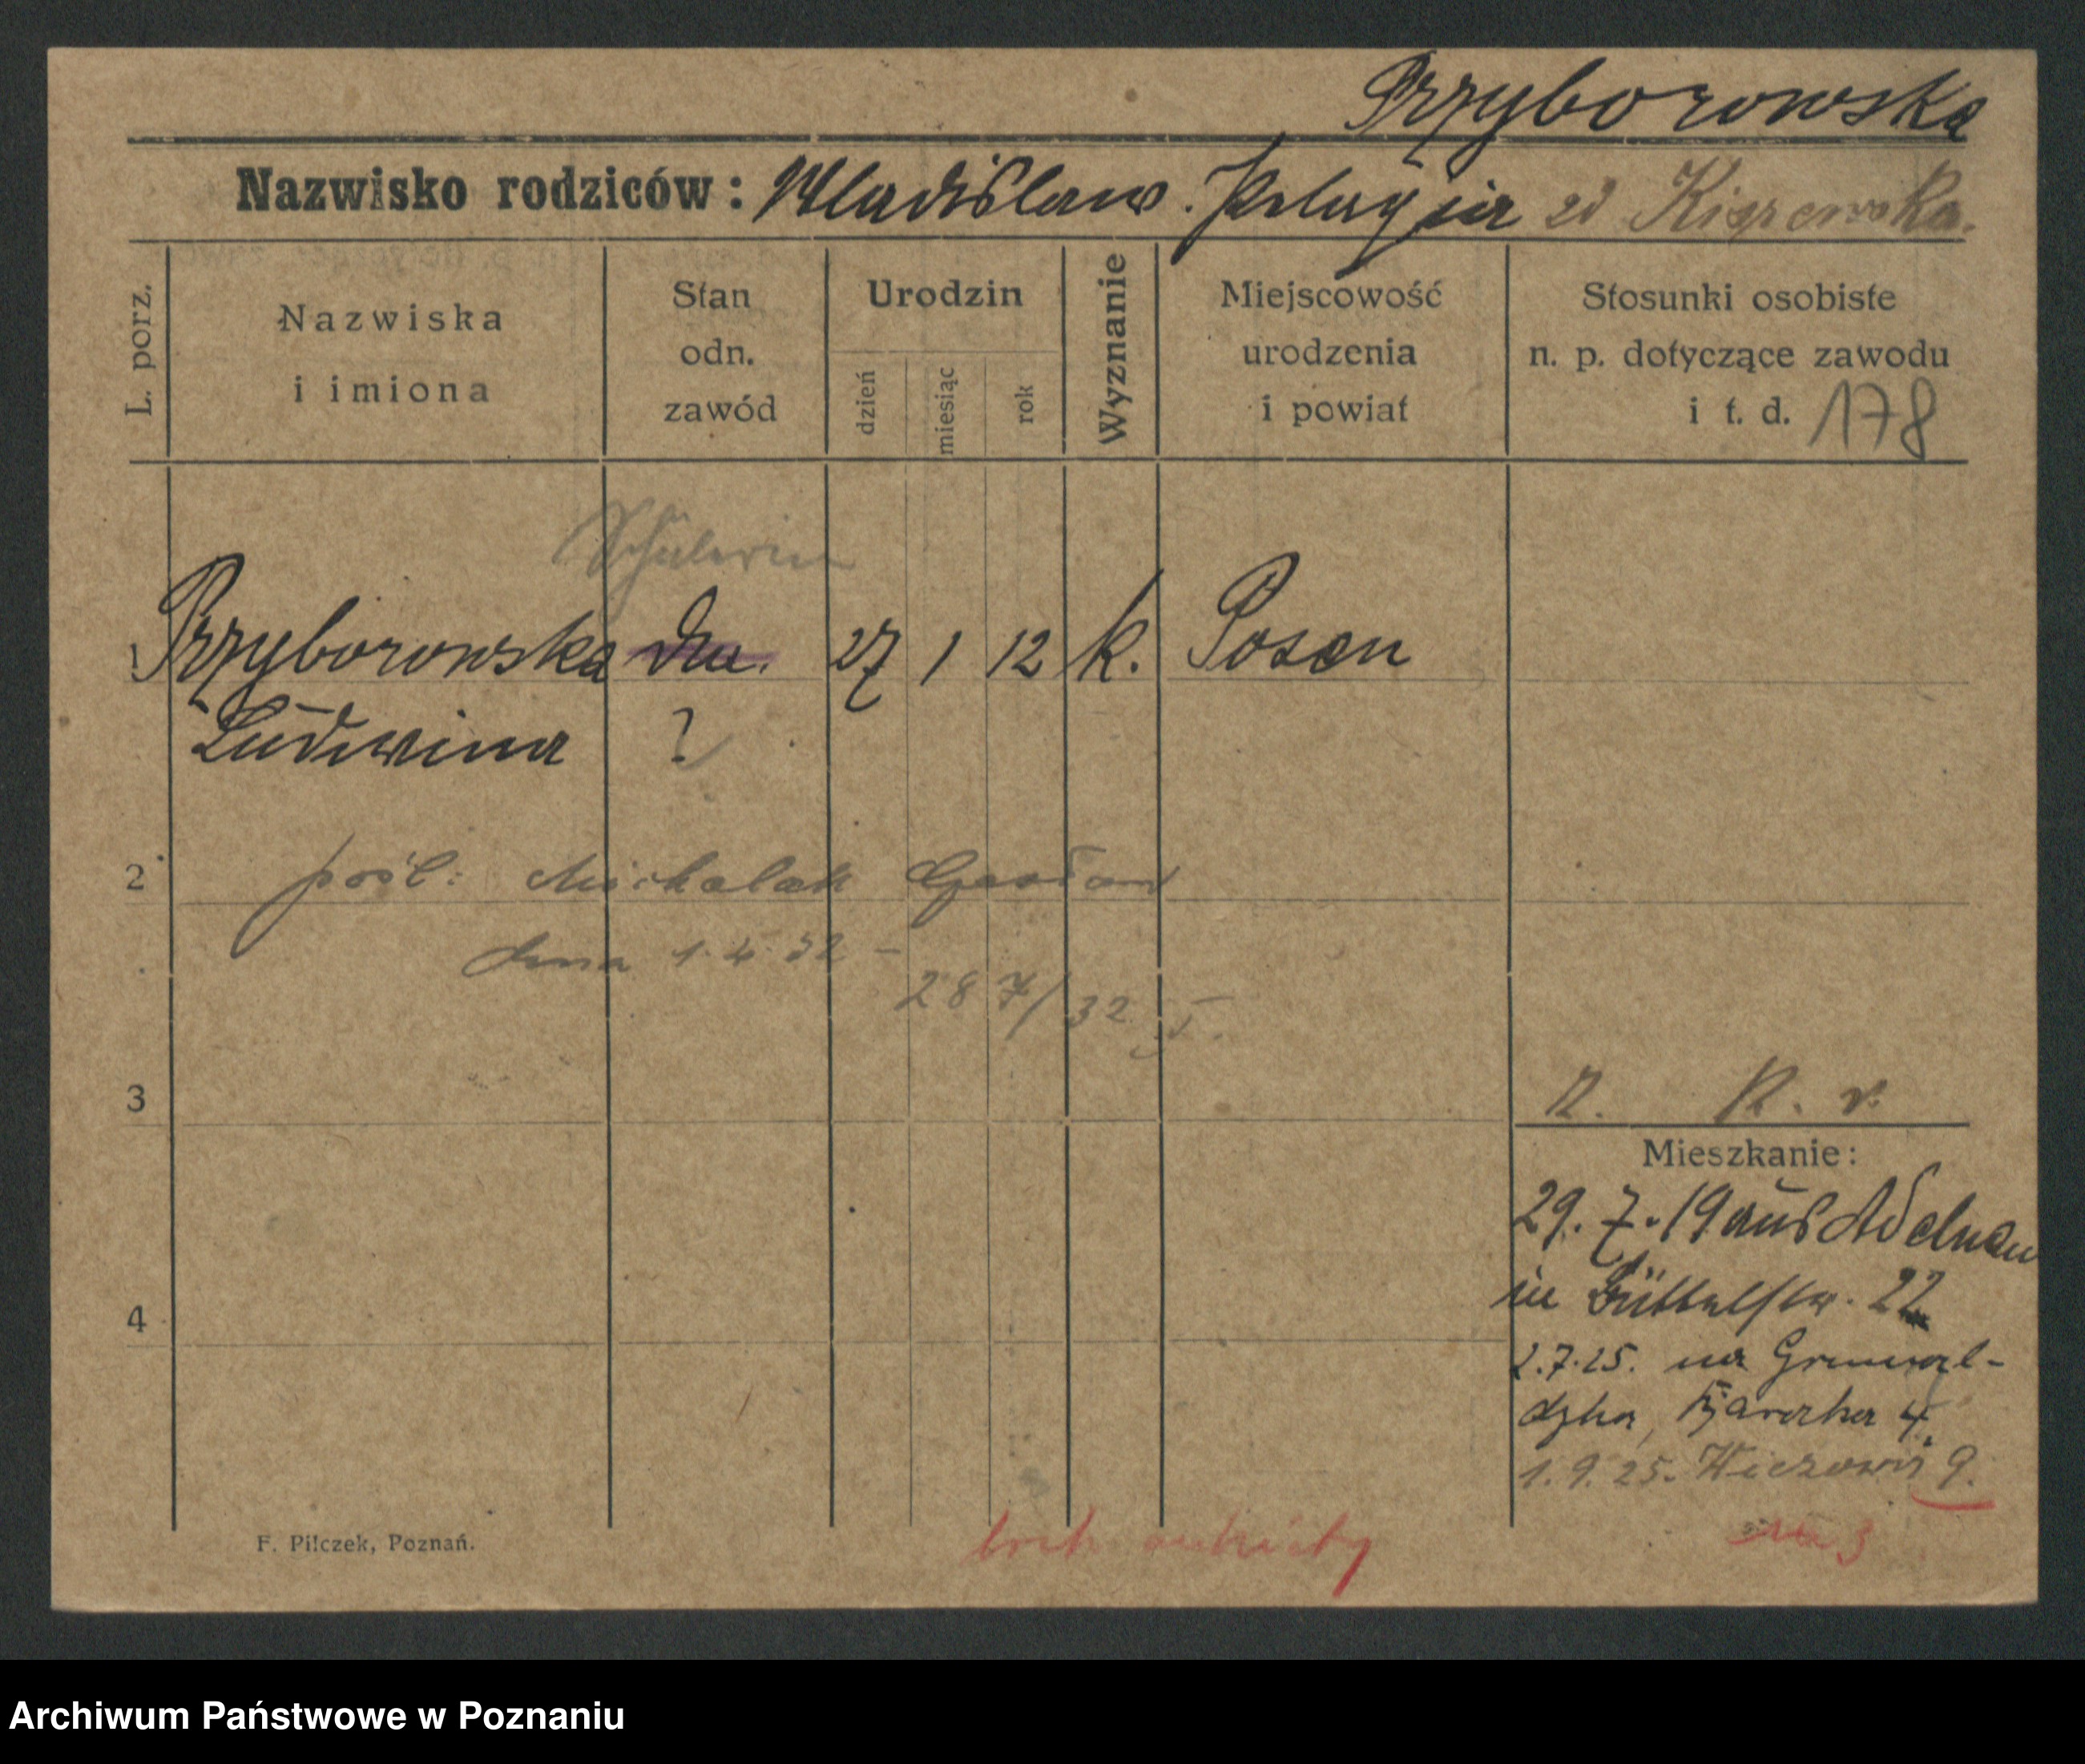 Przyborowska
Nazwisko rodziców: Wladislaus. Pelagia zd Kiszewska.
L. porz.
Nazwiska
i imiona
Stan
odn.
zawód
Urodzin
dzień
miesiąc
rok
Wyznanie
Miejscowość
urodzenia
i powiat
Stosunki osobiste
n. p. dotyczące zawodu
i t. d. 178
Schülerin
1 Przyborowska 27 1 12 k. Posen
Ludwina ?
2 pośl: Michalak
dnia 1.4.32 –
287/32 I.
3
R. K. v.
Mieszkanie:
29. 7. 19 aus Adelnau
in 22
2.7.25. na Grunwal-
dzka, 4
4
1.9.25. 9.
F. Pilczek, Poznań.
brak ankiety
na 3
Archiwum Państwowe w Poznaniu